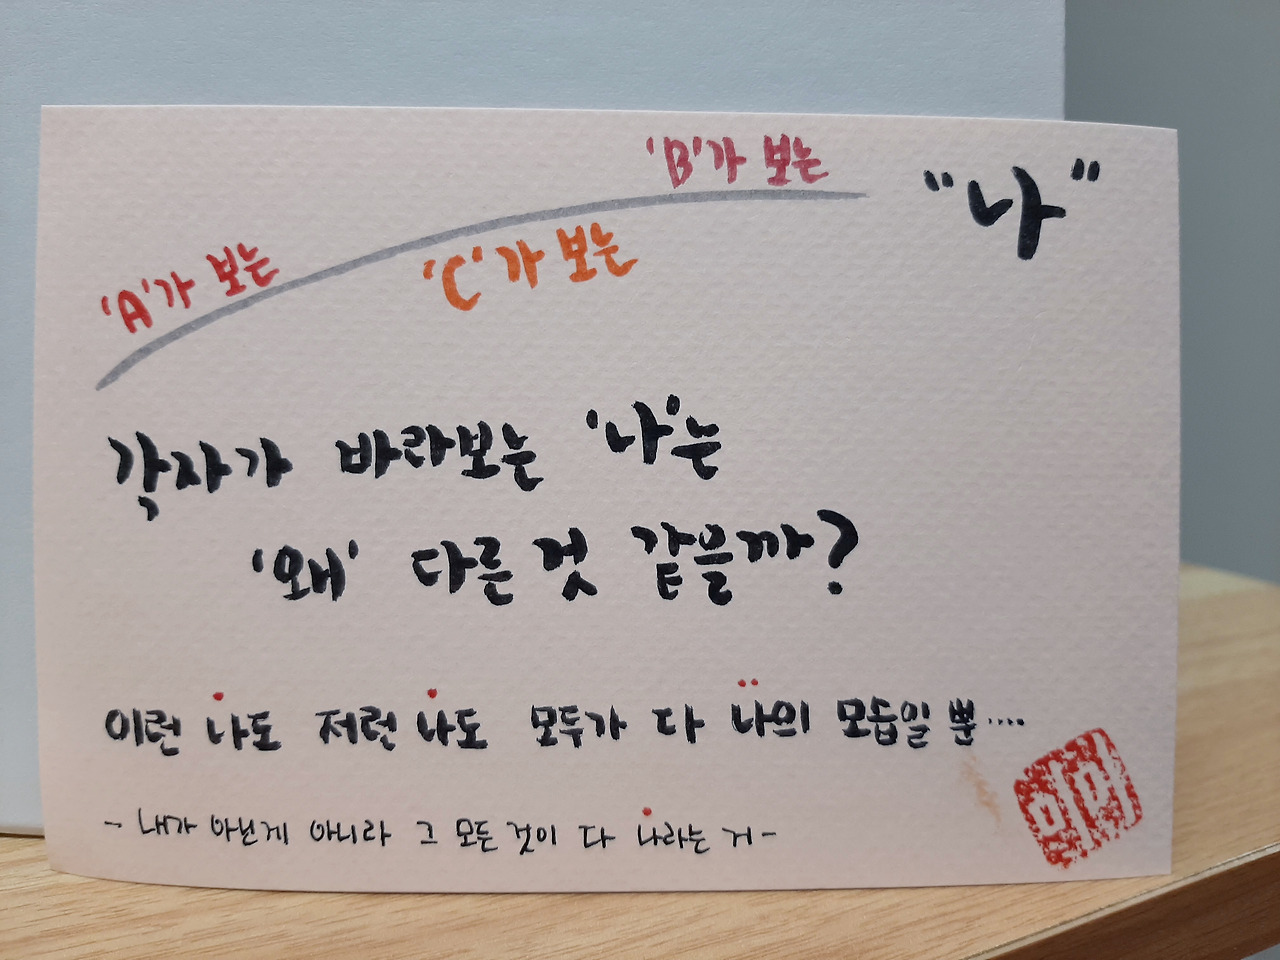 'A'가 보는
'B'가 보는
'C'가 보는
"나"
각자가 바라보는 '나'는
'왜' 다른 것 같을까?
이런 나도 저런 나도 모두가 다 나의 모습일 뿐....
- 내가 아닌게 아니라 그 모든 것이 다 나라는 거 -